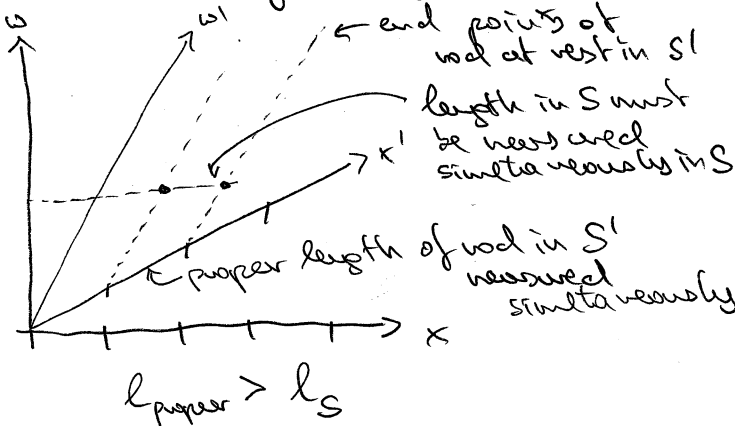 w
w'
end points of
rod at rest in S'
length in S must
be measured
simultaneously in S
x'
proper length of rod in S'
measured
simultaneously
x
l proper > l S